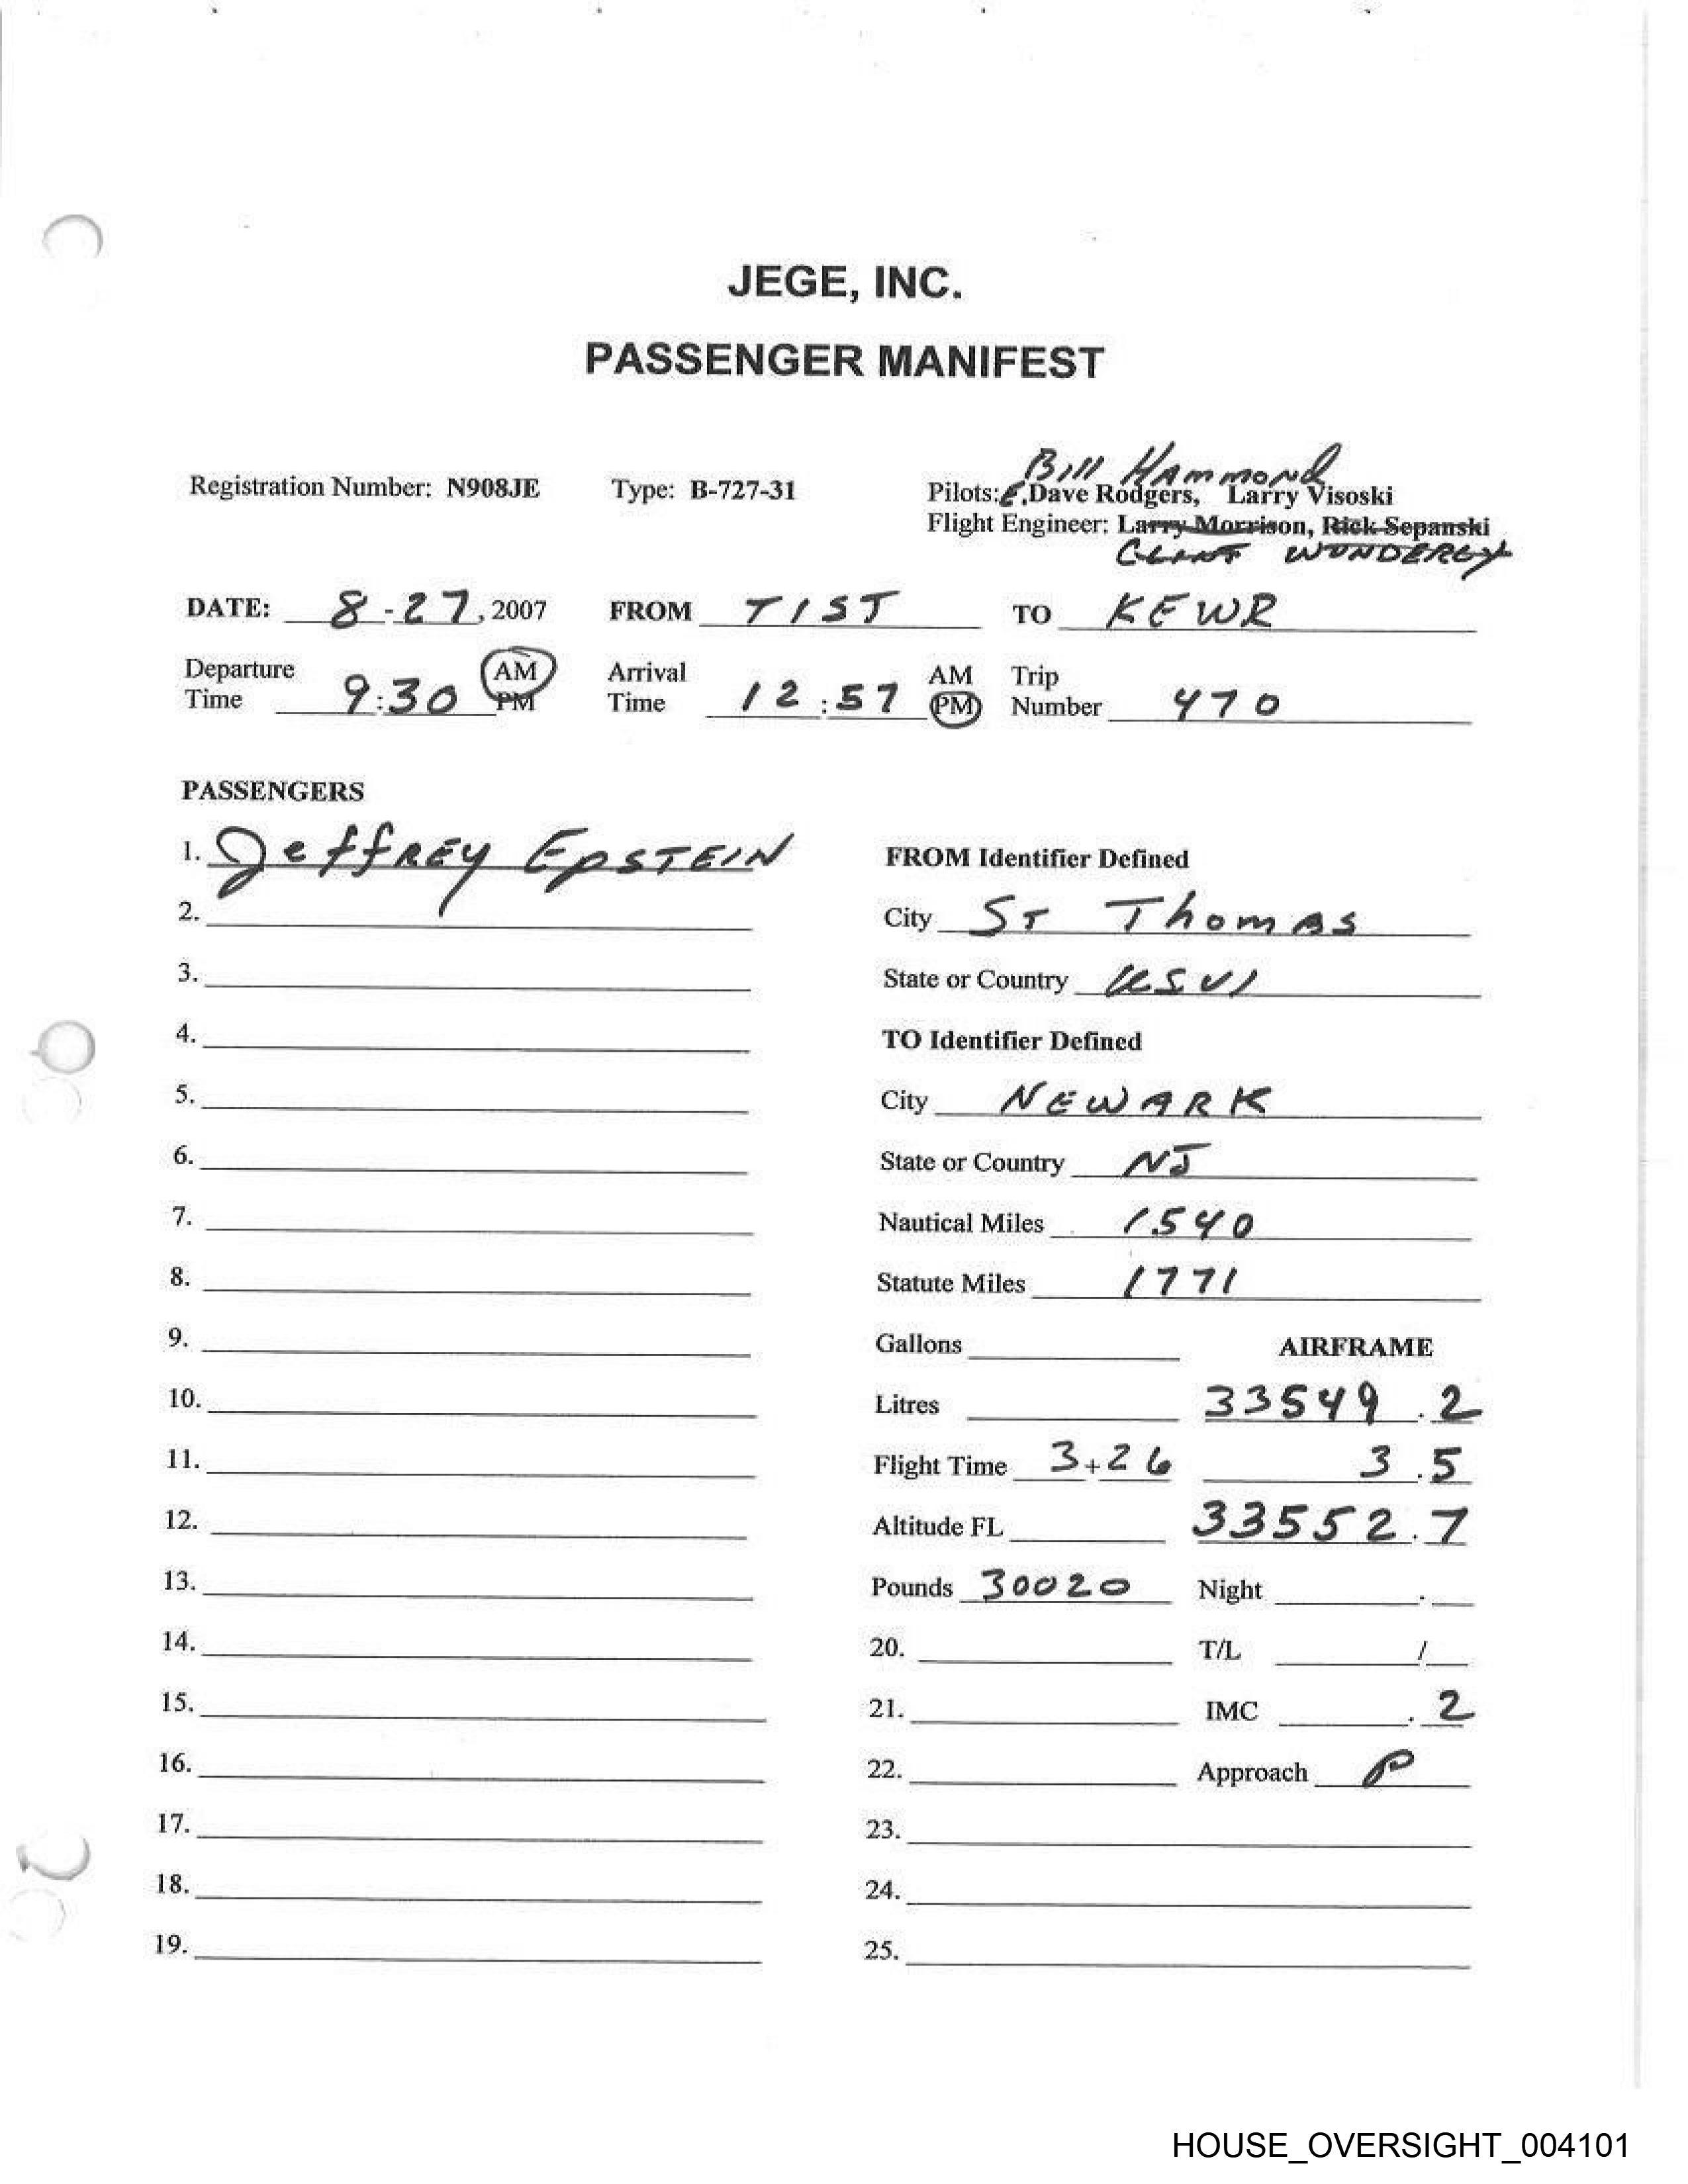 JEGE, INC.
PASSENGER MANIFEST
Bill Hammond
Registration Number: N908JE Type: B-727-31 Pilots: Dave Rodgers, Larry Visoski
Flight Engineer: Larry Morrison, Rick Sepanski
CLINT WUNDERLY
DATE: 8-27, 2007 FROM TIST TO KEWR
Departure Time 9:30 AM PM Arrival Time 12:57 AM PM Trip Number 470
PASSENGERS
1. Jeffrey Epstein
2.
3.
4.
5.
6.
7.
8.
9.
10.
11.
12.
13.
14.
15.
16.
17.
18.
19.
FROM Identifier Defined
City St Thomas
State or Country USVI
TO Identifier Defined
City NEWARK
State or Country NJ
Nautical Miles 1540
Statute Miles 1771
Gallons AIRFRAME
Litres 33549.2
Flight Time 3+26 3.5
Altitude FL 33552.7
Pounds 30020 Night .
20. T/L /
21. IMC .2
22. Approach P
23.
24.
25.
HOUSE_OVERSIGHT_004101